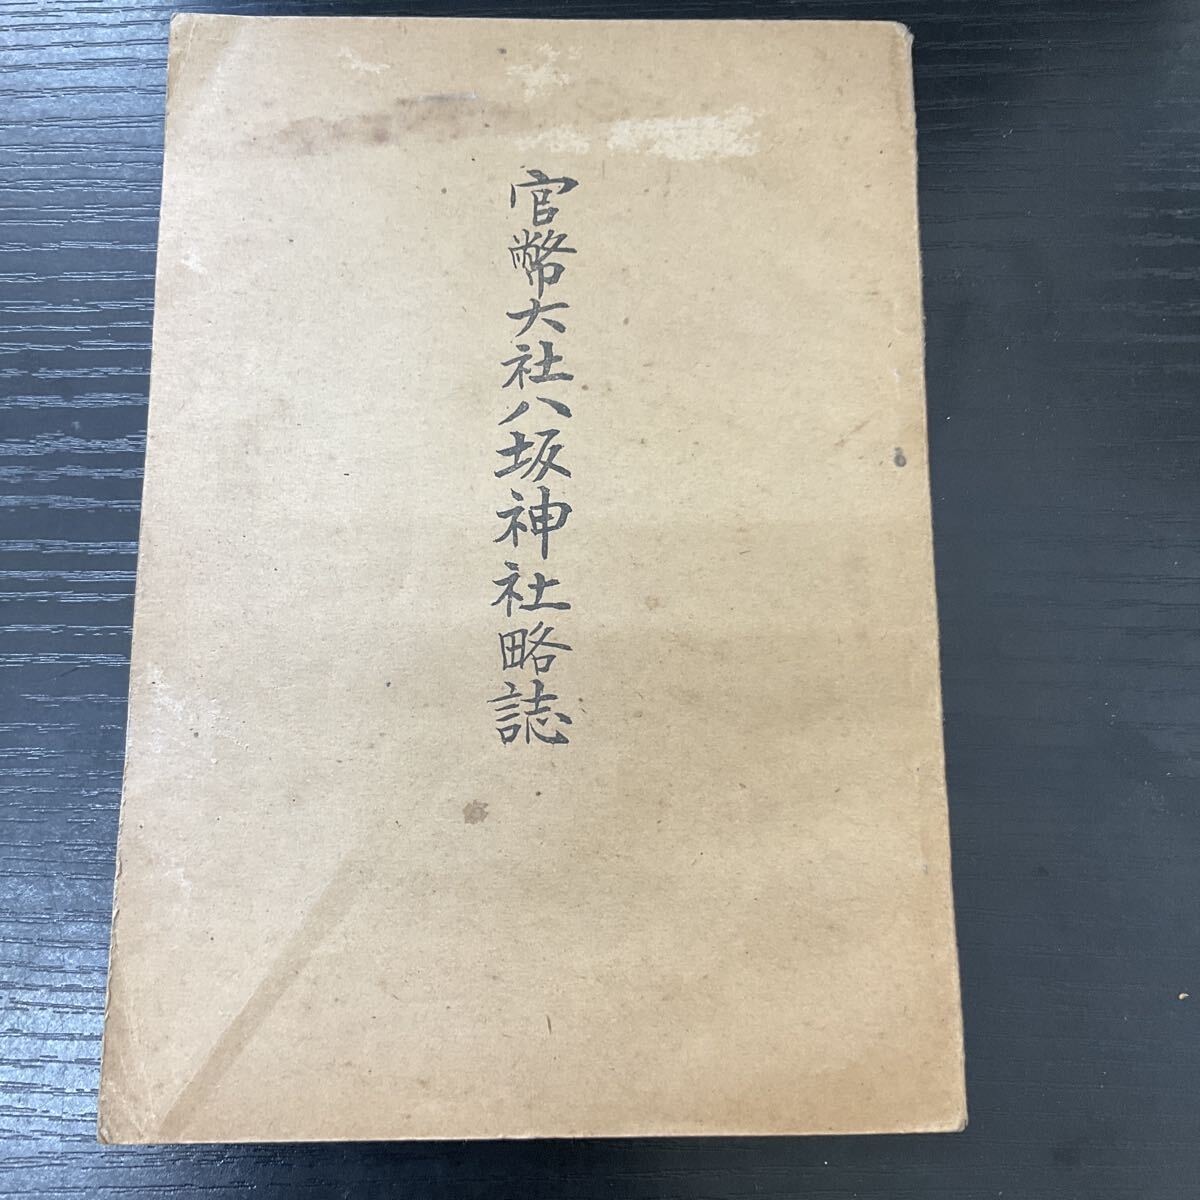 官幣大社八坂神社略誌